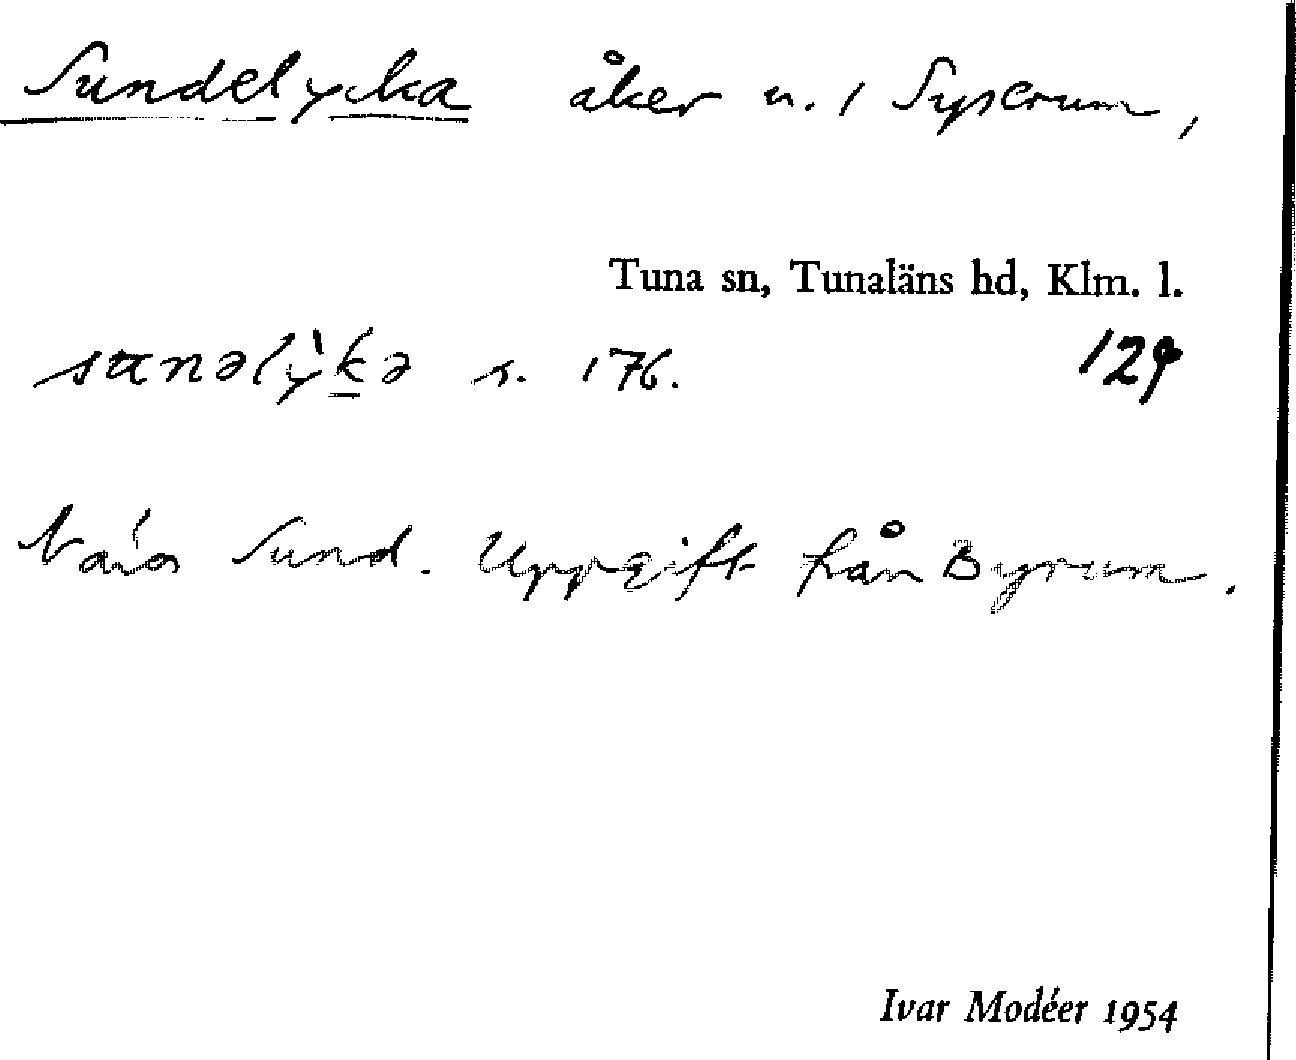 Sundelycka åker u. / Syserum,
Tuna sn, Tunaläns hd, Klm. l.
sʉnəlỳkə s. 176. 124
Nära Sund. Uppgift från Byrum.
Ivar Modéer 1954